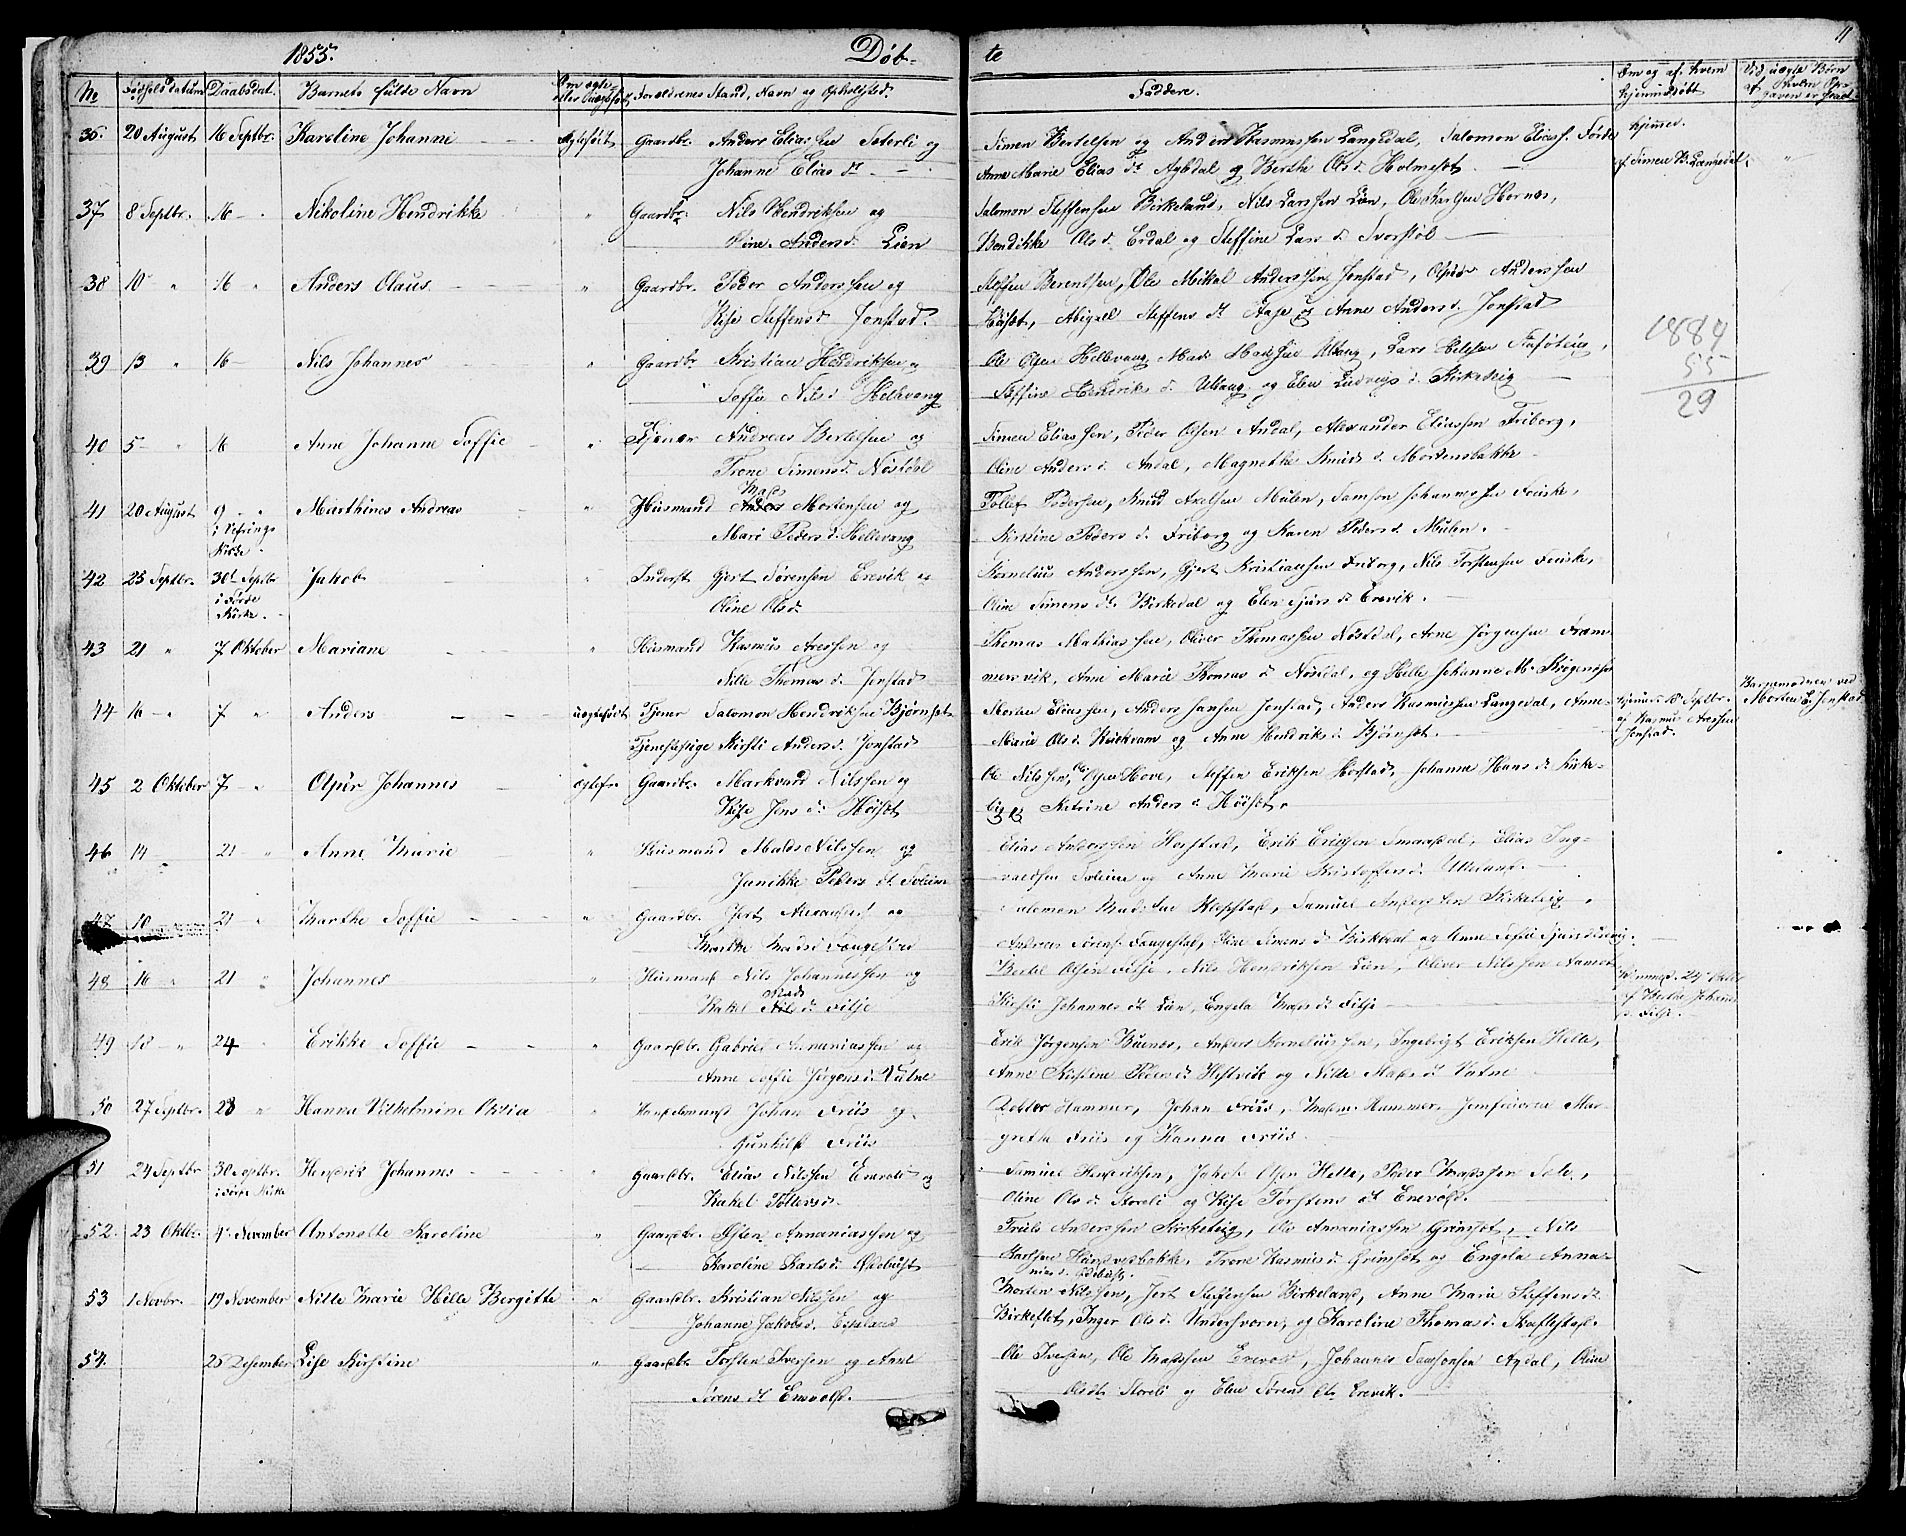 1855.
Døb-
te
11
No
Fødselsdatum
Daabsdat.
Barnets fulde Navn
Om ægte-
eller Uægtefødt
Forældrenes Stand, Navn og Opholdsted.
Faddere.
Om og af hvem
hjemmedøbt
Ved uægte Børn
af hvem Op-
gaven er skeet
36. 20 August 16 Septbr. Karoline Johanne Ægtefødt Gaardbr. Anders Eliassen Sæterli og
Johanne Eliasdr.
Simen Bertelsen og Anders Rasmussen Langedal, Salomon Eliass. Førde
Anne Marie Elias dr. og Berthe Ols d. Holmeset.
hjemme.
af Simen B. Langedal.
37 8 Septbr. 16 Nikoline Hendrikke " Gaardbr. Nils Hendriksen og
Oline Andersd. Lien
Salomon Steffensen Birkeland, Nils Larssen Lien, Ole Karlsen Hornæs,
Bendikke Ols d. Erdal og Steffine Lars d.
38 10 " 16 " Anders Olaus " Gaardbr. Peder Anderssen og
Steffensd. Jonstad.
Steffen Berentsen, Ole Mikal Anderssen Jonstad, Anderssen
Høiset, Abigael Steffens dr. Aase og Anne Anders d. Jonstad
39 13 " 16 Nils Johannes " Gaardbr. Kristian Hendriksen og
Soffie Nilsd. Hellevang
Ole Olsen Hellevang, Mads Madssen Ullaug, Lars
Steffine Hendriks d. Ullaug og Elen Ludvigs d. Kirketeig
1884
55
29
40 5 " 16 Anne Johanne Soffie " Tjener Andreas Bertelsen og
Trone Simensd. Nøstdal
Simen Eliassen, Peder Olsen Andal, Alexander Eliassen Friborg,
Oline Anders d. Andal, Magnethe Knuds d. Mortensbakke
41 20 August 9 " Marthines Andreas " Huusmand Anders Mortensen og
Mads
i Vefrings
Kirke
Mari Peders d. Hellevang
Tollef Pedersen, Knud Axelsen Mulen, Samson Johannessen Fuiske,
Kirstine Peders d. Friborg og Karen Peders d. Mulen.
42 23 Septbr. 30t Septbr. Jakob " Inderst Gjert Sørensen Erevik og
i Førde
Kirke.
Oline Olsd.
Kornelius Anderssen, Gjert Kristiansen Friborg, Nils Torstensen Fuiske,
Oline Simens dr. Birkedal og Elen Sjurs d. Erevik.
43 21 " 7 Oktober Mariane " Huusmand Rasmus Aressen og
Nille Thomas d. Jonstad
Thomas Mathiassen, Oliver Thomassen Nøstdal, Arne Jørgensen Fram-
mersvik, Ane Marie Thomas d. Nøstdal, og Helle Johanne M.
44 16 " 7 " Anders uægtefødt Tjener Salomon Hendriksen Bjørnset
Tjenestepige Kirsti Andersd. Jonstad
Morten Eliassen, Anders Hansen Jonstad, Anders Rasmussen Langedal, Anne
Marie Ols d. Kvikvam og Anne Hendriks d. Bjørnset.
hjemme 18 Septbr.
af Rasmus Aressen
Jonstad.
Barnemoderen ved
Morten E. Jonstad
45 2 Oktober 7 " Johannes ægtef. Gaardbr. Markvard Nilssen og
Jens d. Høiset
Ole Nilssen, Ole Olsen Hove, Steffen Eriksen Horstad, Johanne Hans d. Kirke-
og Katrine Anders d. Høiset.
46 14 21 " Anne Marie " Huusmand Mads Nilssen og
Jenikke Peders dr. Soleim
Elias Anderssen Horstad, Erik Eriksen Smaadal, Elias Ing-
valdsen Soleim og Anne Marie Kristoffersd. Ulland.
47 10 21 " Marthe Soffie " Gaardbr. og
Marthe Madsd.
Salomon Madssen Klepstad, Samuel Anderssen Kirketeig,
Andreas Sørens. Oline Simens d. Birkedal og Anne Soffie
48 16 21 " Johannes " Huusmand Nils Johannessen og
Mads
Rakel Nils d. Fitje
Bertel Olsen Fitje, Nils Hendriksen Lien, Oliver Nilssen
Kirsti Johannes dr. Lien, Engela Mads d. Fitje
af Berthe Johans
d. Fitje.
49 18 " 24 Erikke Soffie " Gaardbr. Gabriel Annaniassen og
Anne Soffie Jørgens d. Vatne
Erik Jørgensen Buenæs, Anders Korneliussen, Ingebrigt Eriksen Helle,
Anne Kirstine Peders dr. Hestvik og Nille Mads dr. Vatne
50 27 Septbr. 28 " Hanna Vilhelmine Oktia " Handelsmand Johan Friis og
Gunhild Friis
Hammer, Johan Friis, Madm. Hammer, Jomfruerne Mar-
grethe Friis og Hanna Friis.
51 24 Septbr 30 Septbr. Hendrik Johannes " Gaardbr. Elias Nilssen Eneveld og
i Førde Kirke
Rakel Tollevsd.
Samuel Hendriksen, Jakob Olsen Helle, Peder Madssen Sole,
Oline Ols d. Storeli og Torstens dr. Enevold.
52. 23 Oktbr. 4. November Antonette Karoline " Gaardbr. Annaniassen og
Karoline Karlsd. Ødebust
Troels Anderssen Kirketeig, Ole Annaniassen Grimset, Nils
Karlsen Trone Rasmus d. Grimset og Engela Anna-
nias d. Ødebust.
53 1 Novbr. 19 November Nille Marie Helle Bergitte " Gaardbr. Kristian Nilssen og
Johanne Jakobs d. Espeland
Morten Nilssen, Jert Steffensen Birkeland, Anne Marie Steffens dr.
Birkeflet, Inger Ols d. Undersvorn, og Karoline Thomas d.
54. 25 Desember Lise Kirstine " Gaardbr Torsten Iversen og Anne
Sørens dr. Enevold.
Ole Iversen, Ole Madssen Enevold, Johannes Samsonsen Oline
Ols dr. Storeli og Elen Sørens dr. Erevik.